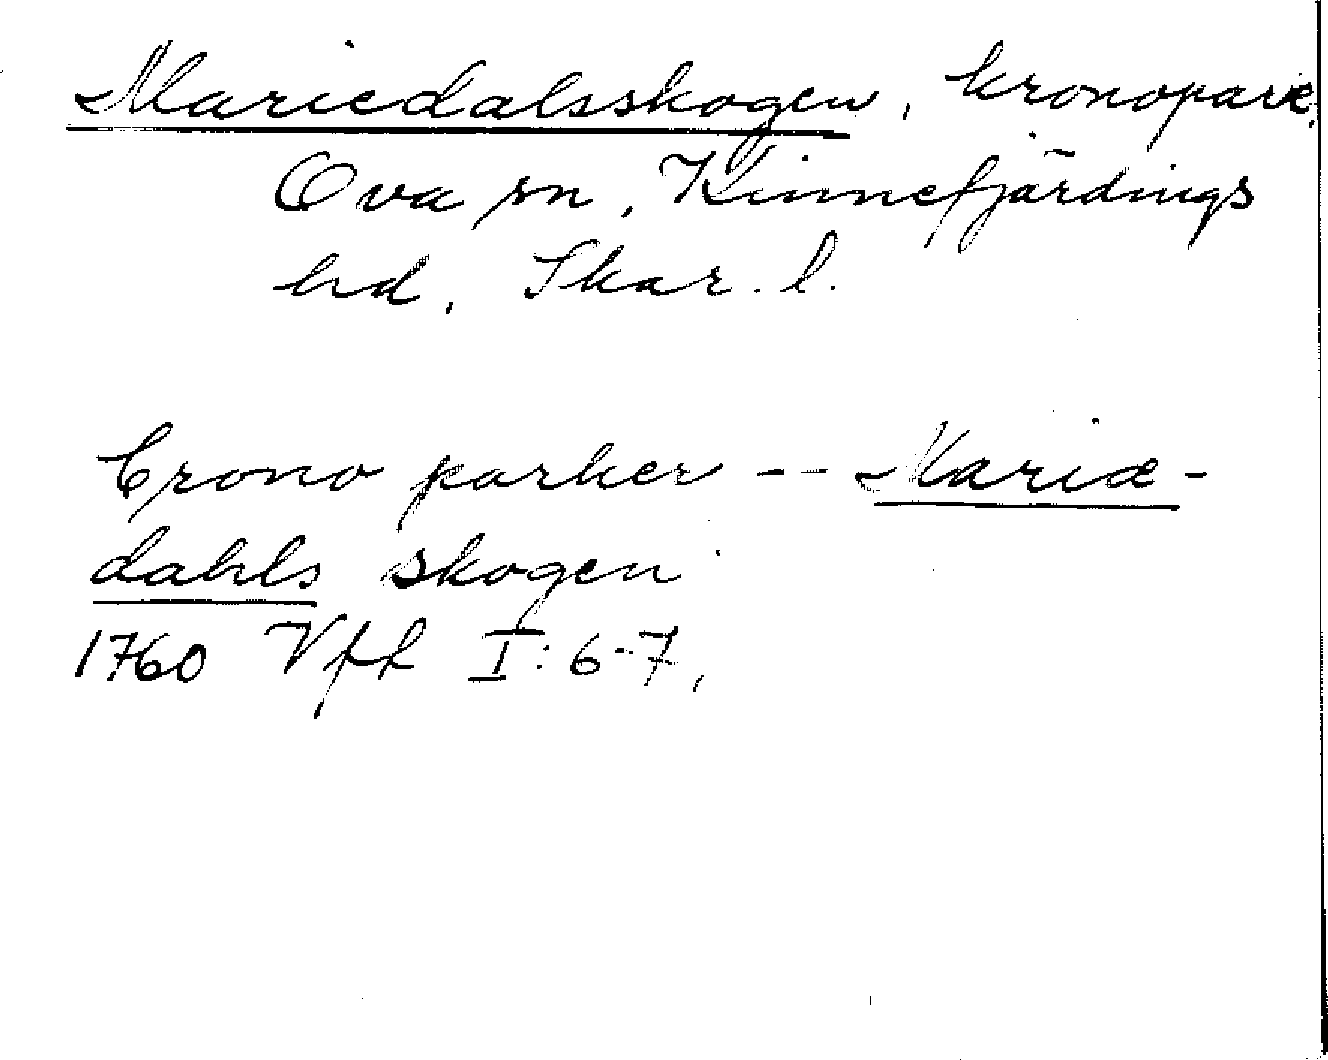 Mariedalsskogen, kronopark,
Ova sn, Kinnefjärdings
hd, Skar. l.
Crono parker -- Mariæ-
dahls skogen
1760 Vff I: 6-7,